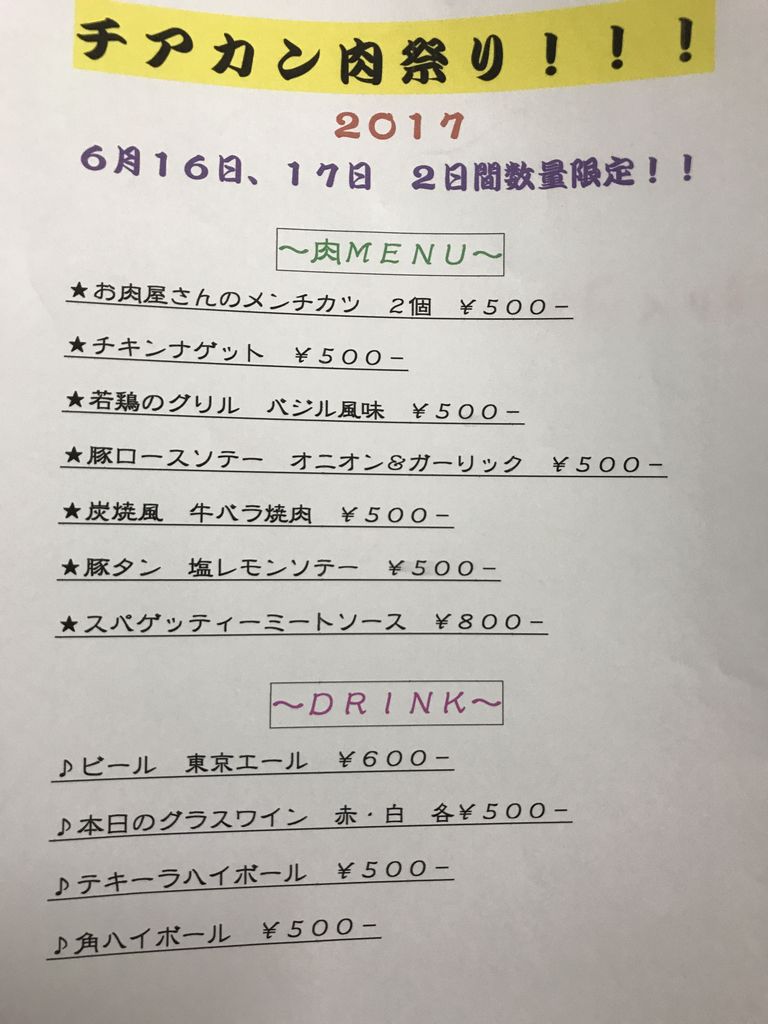 チアカン肉祭り！！！
２０１７
６月１６日、１７日　２日間数量限定！！
～肉ＭＥＮＵ～
★お肉屋さんのメンチカツ　２個　￥５００－
★チキンナゲット　￥５００－
★若鶏のグリル　バジル風味　￥５００－
★豚ロースソテー　オニオン＆ガーリック　￥５００－
★炭焼風　牛バラ焼肉　￥５００－
★豚タン　塩レモンソテー　￥５００－
★スパゲッティーミートソース　￥８００－
～ＤＲＩＮＫ～
♪ビール　東京エール　￥６００－
♪本日のグラスワイン　赤・白　各￥５００－
♪テキーラハイボール　￥５００－
♪角ハイボール　￥５００－